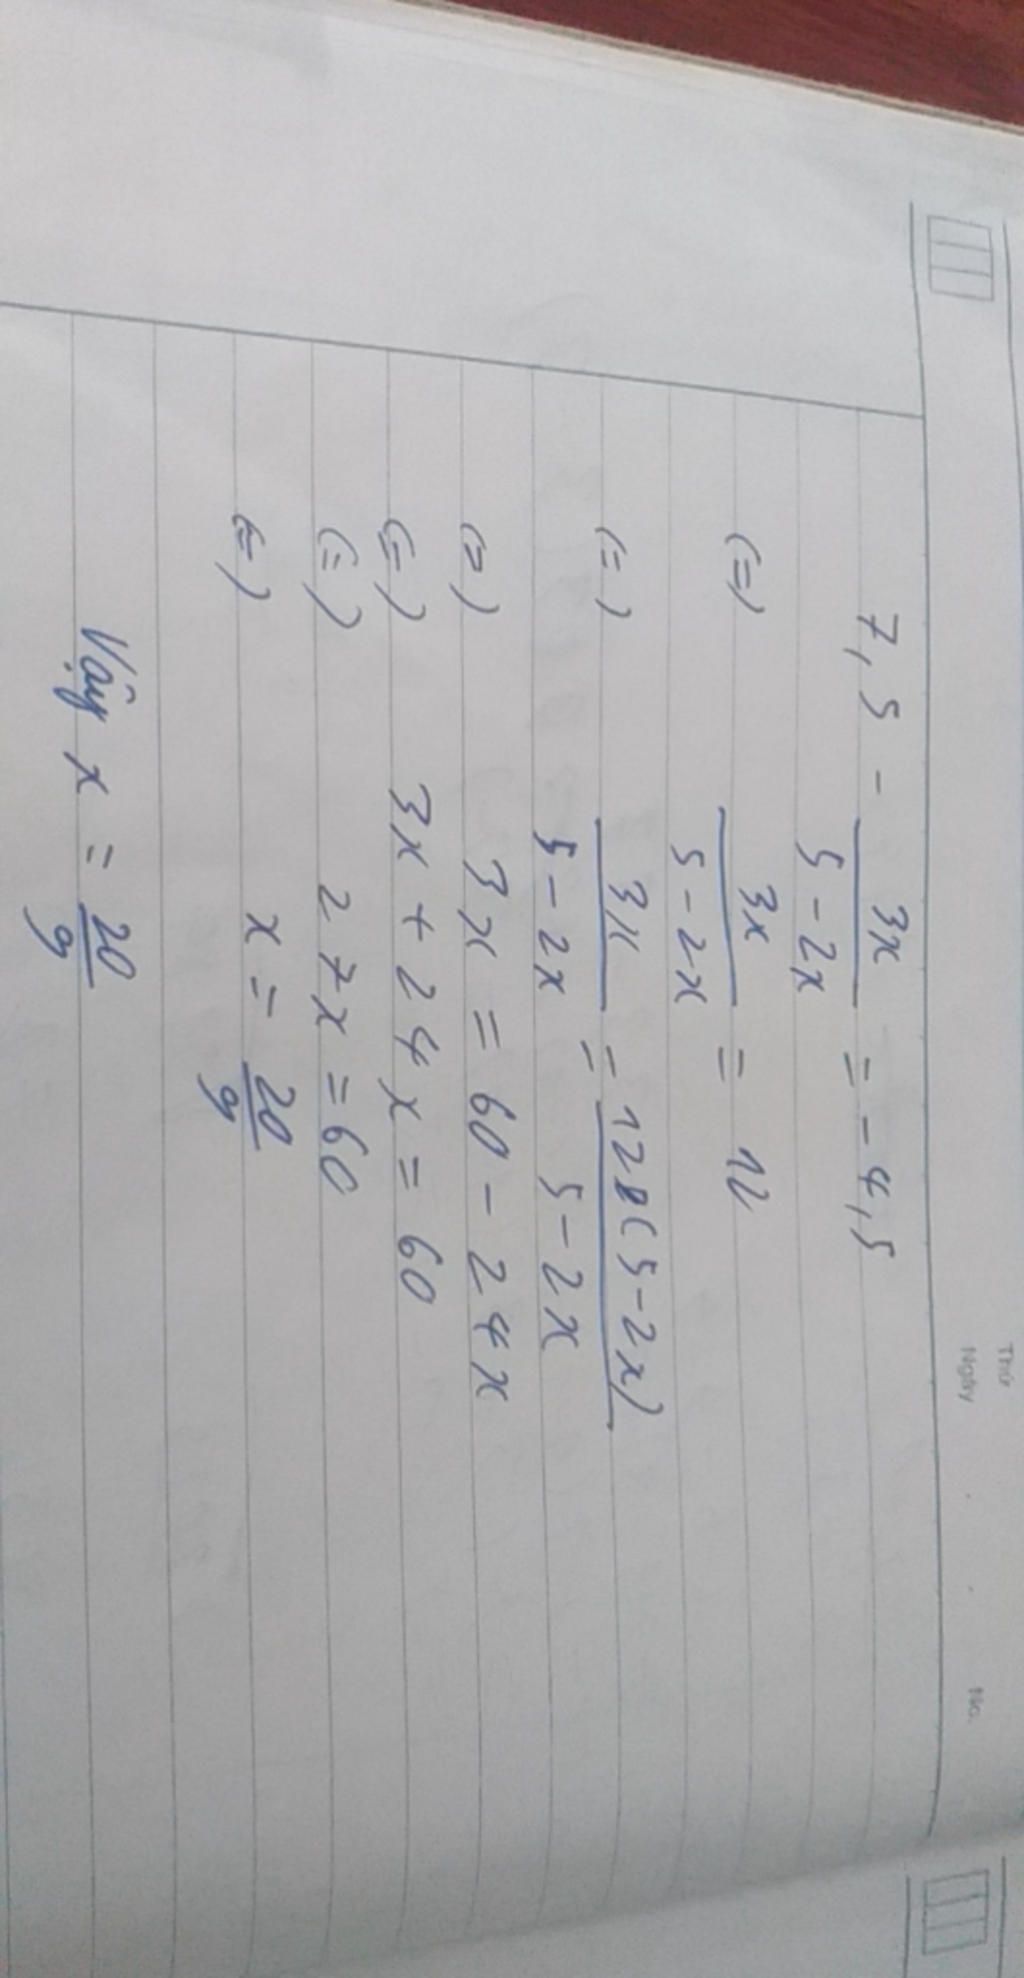 Thứ
Ngày
No.
7,5 - 3x/(5-2x) = -4,5
(=) 3x/(5-2x) = 12
(=) 3x/(5-2x) = 12(5-2x)/(5-2x)
(=) 3x = 60 - 24x
(=) 3x + 24x = 60
(=) 27x = 60
(=) x = 20/9
Vậy x = 20/9